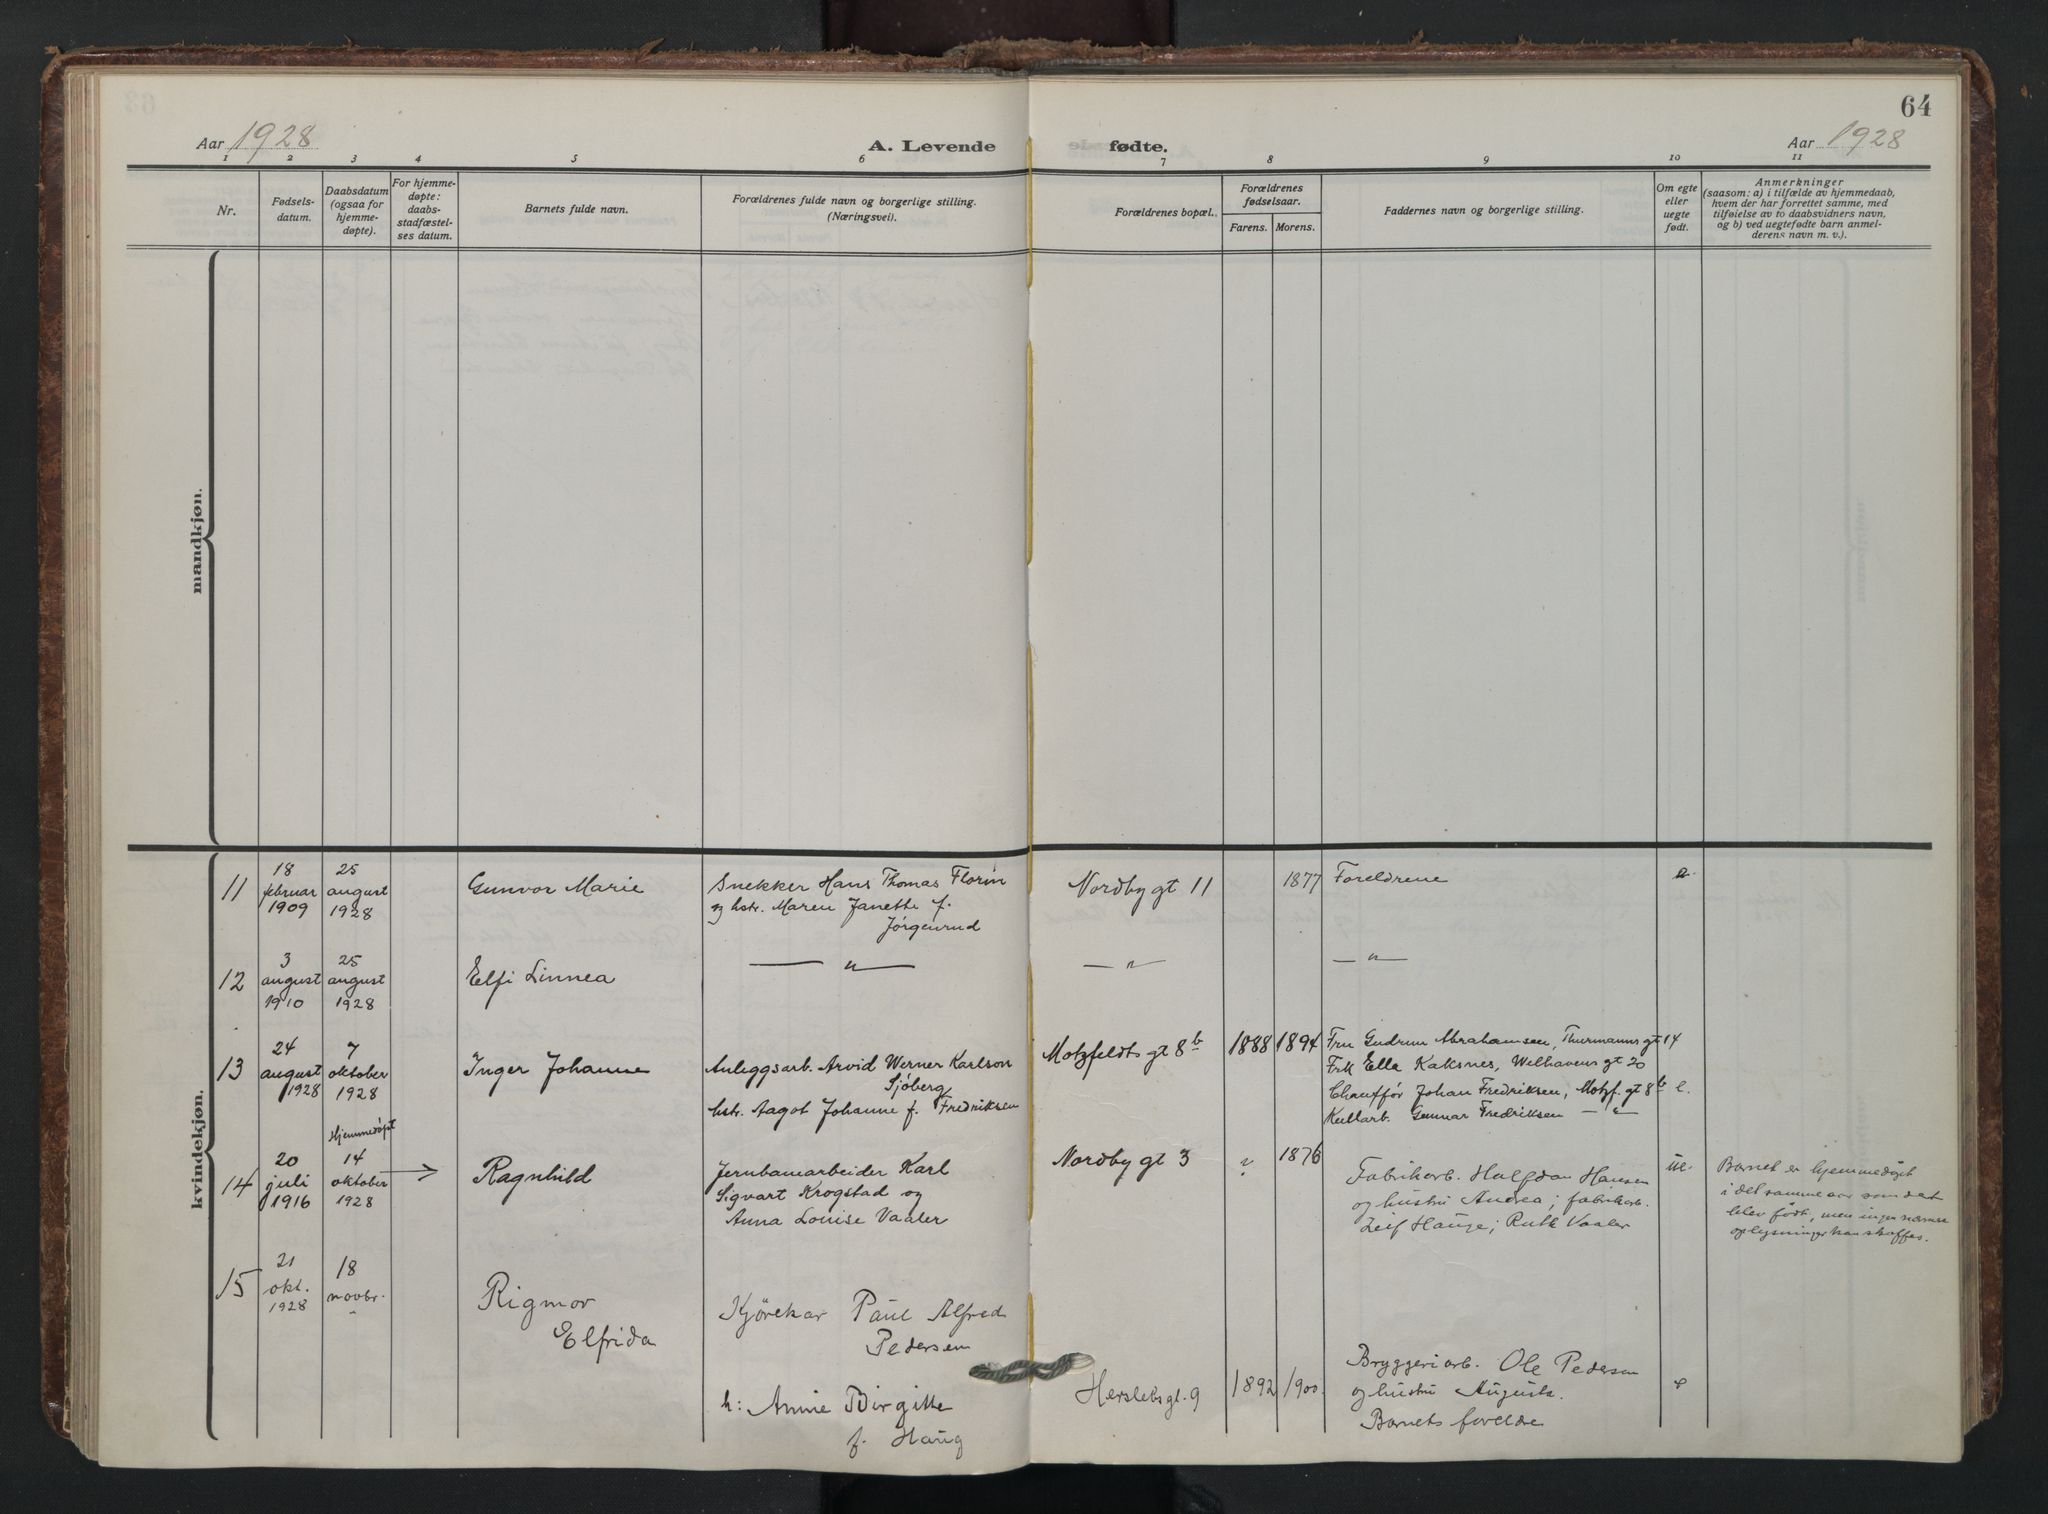 64
Aar 1928
A. Levende fødte.
Aar 1928
1 2 3 4 5 6 7 8 9 10 11
Nr.
Fødsels-
datum.
Daabsdatum
(ogsaa for
hjemme-
døpte).
For hjemme-
døpte:
daabs-
stadfæstel-
ses datum.
Barnets fulde navn.
Forældrenes fulde navn og borgerlige stilling.
(Næringsvei).
Forældrenes bopæl.
Forældrenes
fødselsaar.
Farens. Morens.
Faddernes navn og borgerlige stilling.
Om egte
eller
uegte
født.
Anmerkninger
(saasom: a) i tilfælde av hjemmedaab,
hvem der har forrettet samme, med
tilføielse av to daabsvidners navn,
og b) ved uegtefødte barn anmel-
derens navn m. v.).
mandkjøn.
kvindekjøn.
11
18
februar
1909
25
august
1928
Gunvor Marie
Snekker Hans Thomas Florin
og hstr. Maren Janette f.
Jørgenrud
Nordby gt 11
1877
Foreldrene
e.
12
3
august
1910
25
august
1928
Elfi Linnea
— " —
— " —
— " —
13
24
august
1928
7
oktober
1928
Inger Johanne
Anleggsarb. Arvid Werner Karlson
Sjøberg
hstr. Aagot Johanne f. Fredriksen
Motzfeldts gt 8b
1888
1894
Fru Gudrun Abrahamsen, Thurmanns gt 14
Frk Ella Kaksnes, Welhavens gt 20
Chauffør Johan Fredriksen, Motzf. gt 8b
Kullarb. Gunnar Fredriksen — " —
e.
14
20
juli
1916
Hjemmedøpt
14
oktober
1928
→
Ragnhild
Jernbanearbeider Karl
Sigvart Krogstad og
Anna Louise Vaaler
Nordby gt 3
?
1876
Fabrikarb. Halfdan Hansen
og hustru Andrea; fabrikarb.
Leif Hauge; Ruth Vaaler
ue.
Barnet er hjemmedøpt
i det samme aar som det
blev født, men ingen nærmere
oplysninger kan skaffes.
15
21
okt.
1928
18
novbr.
"
Rigmor
Elfrida
Kjørekar Paul Alfred
Pedersen
h: Annie Birgitte
f. Haug
Herslebsgt. 9
1892
1900.
Bryggeriarb. Ole Pedersen
og hustru Augusta.
Barnets foreldre
e